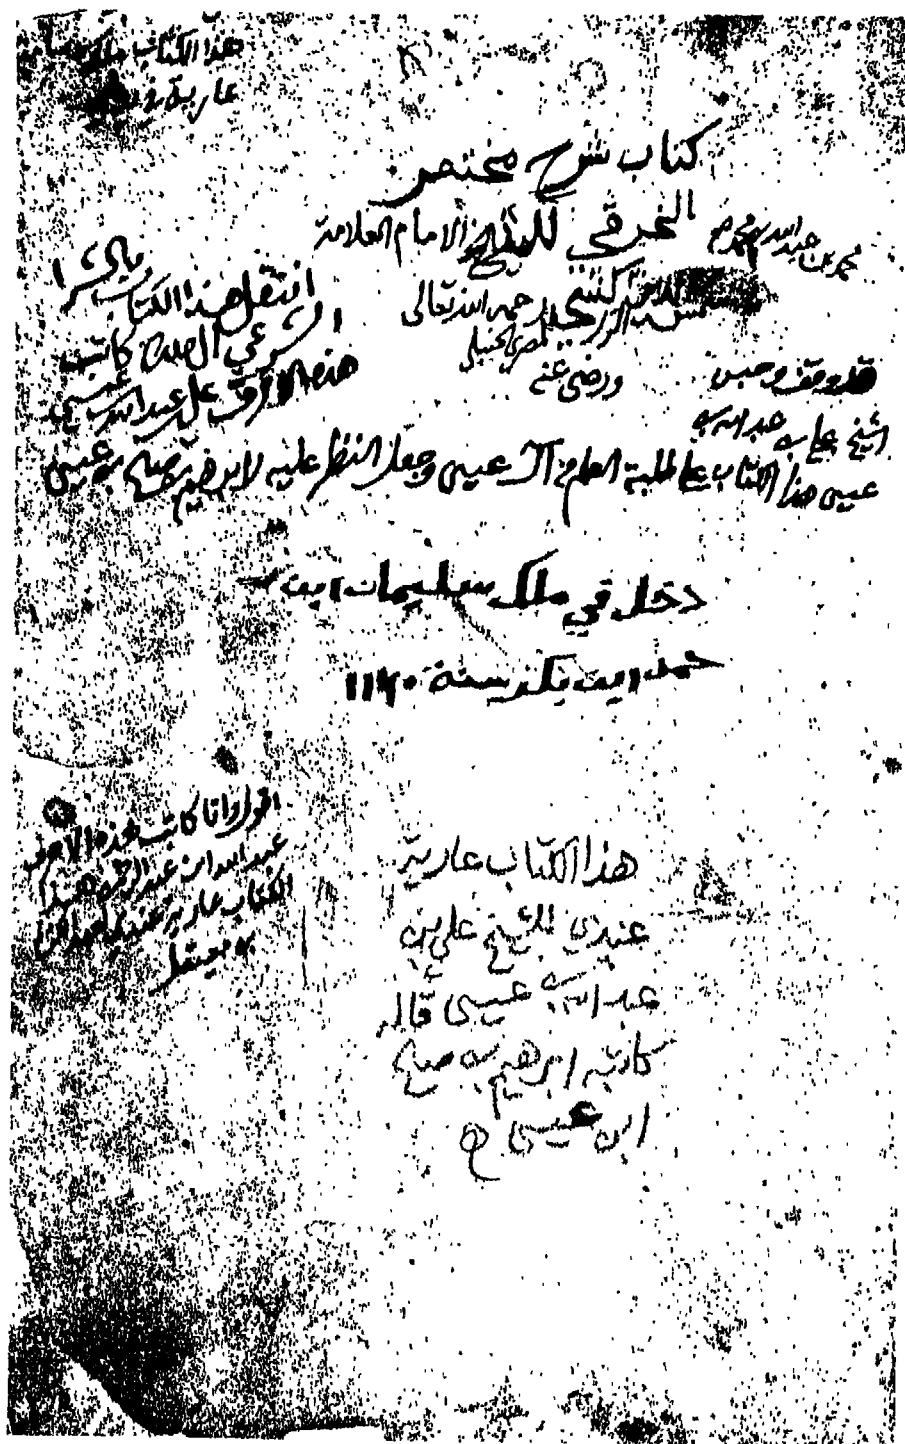 هذا الكتاب
عارية
كتاب شرح مختصر
الخرقي للشيخ الامام العلامة
محمد بن عبد الله بن محمد
شمس الدين الزركشي رحمه الله تعالى
المصري الحنبلي
ورضي عنه
انتقل هذا الكتاب بالشرا
الشرعي الى ملك كاتب
هذه الاحرف علي بن عبد الله بن عيسى
قد وقف وحبس
الشيخ علي بن عبد الله بن
عيسى هذا الكتاب على طلبة العلم من آل عيسى وجعل النظر عليه لابراهيم بن صالح بن عيسى
دخل في ملك سليمان ابن
حمد ابن سنة ١١٢٠
اقول وانا كاتب هذه الاحرف
عبد الله ابن عبد الرحمن هذا
الكتاب عارية عندي
هذا الكتاب عارية
عندي للشيخ علي بن
عبد الله بن عيسى قاله
كاتبه ابراهيم بن صالح
ابن عيسى